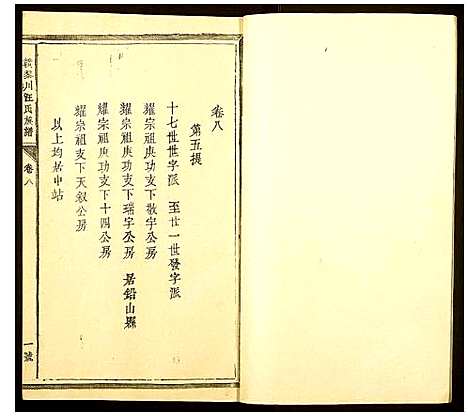 卷八
第五提
十七世世字派 至廿一世發字派
耀宗祖庚功支下敬字公房
耀宗祖庚功支下瑞字公房 居鉛山縣
耀宗祖庚功支下十四公房
耀宗祖支下天敍公房
以上均居中站
川汪氏族譜
卷八
一號